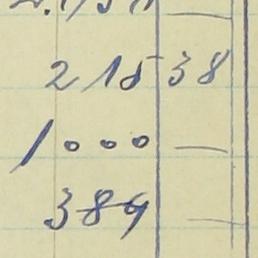 215 38
1000 —
389 —